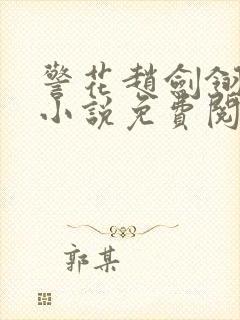 警花趙劍
小說免費閱
郭某